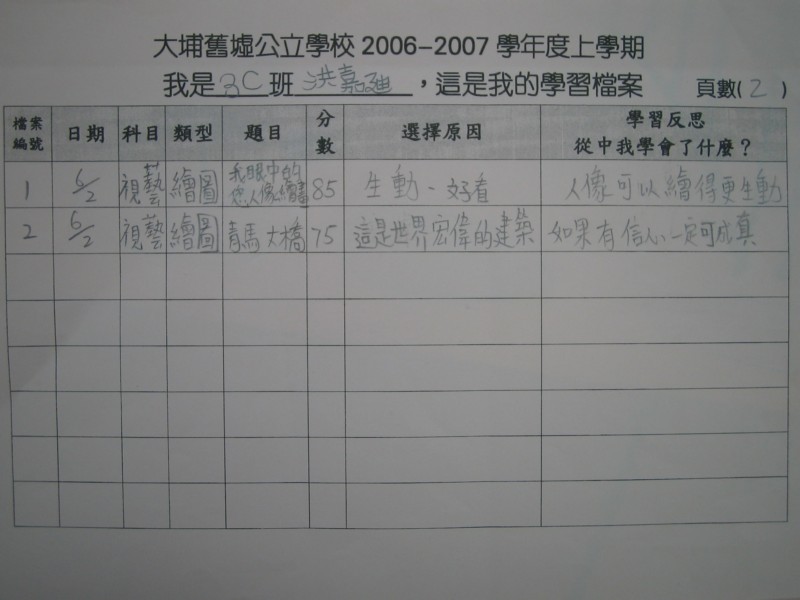 大埔舊墟公立學校 2006-2007 學年度上學期
我是 3C 班 洪嘉廸 ，這是我的學習檔案 頁數( 2 )
檔案編號 日期 科目 類型 題目 分數 選擇原因 學習反思 從中我學會了什麼？
1 6/2 視藝 繪圖 我眼中的您人像繪畫 85 生動、好看 人像可以繪得更生動
2 6/2 視藝 繪圖 青馬大橋 75 這是世界宏偉的建築 如果有信心一定可成真